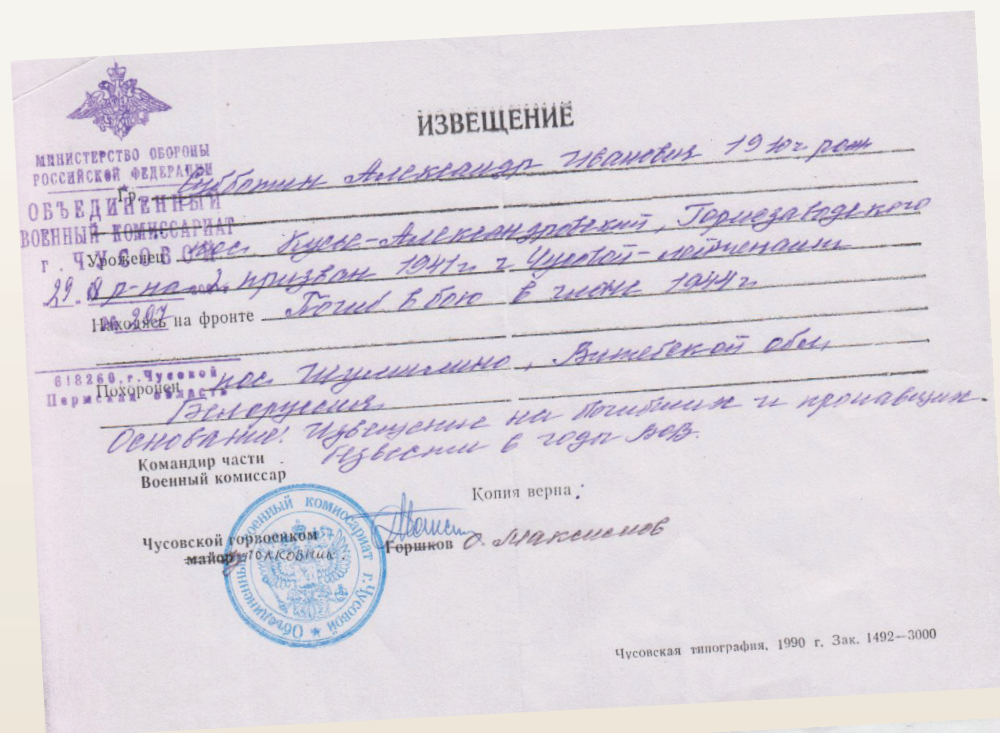 ИЗВЕЩЕНИЕ
МИНИСТЕРСТВО ОБОРОНЫ
РОССИЙСКОЙ ФЕДЕРАЦИИ
ОБЪЕДИНЕННЫЙ
ВОЕННЫЙ КОМИССАРИАТ
г. Чусовой
№ 207
618260, г. Чусовой
Пермская область
Гр. Субботин Александр Иванович 1910 г рож
Уроженец пос. Кусье-Александровский, Горнозаводского
р-на призван 1941 г. г Чусовой
Находясь на фронте Погиб в бою в июне 1944 г
Похоронен пос. Шумилино, Витебской обл,
Белоруссия.
Основание: Извещение на погибших и пропавших
безвести в годы ВОВ.
Командир части
Военный комиссар
Копия верна:
Чусовской горвоенком
майор полковник.
Горшков О. Максимов
Объединенный военный комиссариат г. Чусовой
Чусовская типография, 1990 г. Зак. 1492—3000